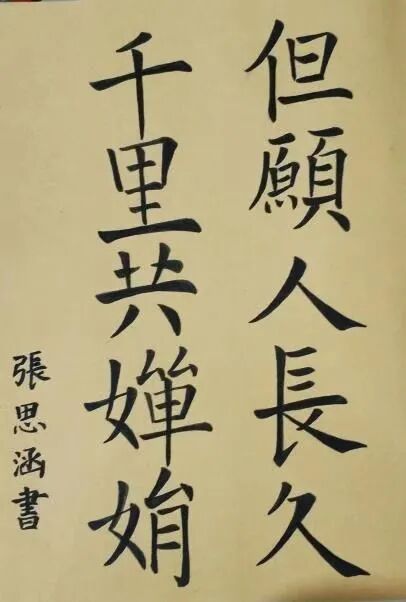 但願人長久
千里共嬋娟
張思涵書